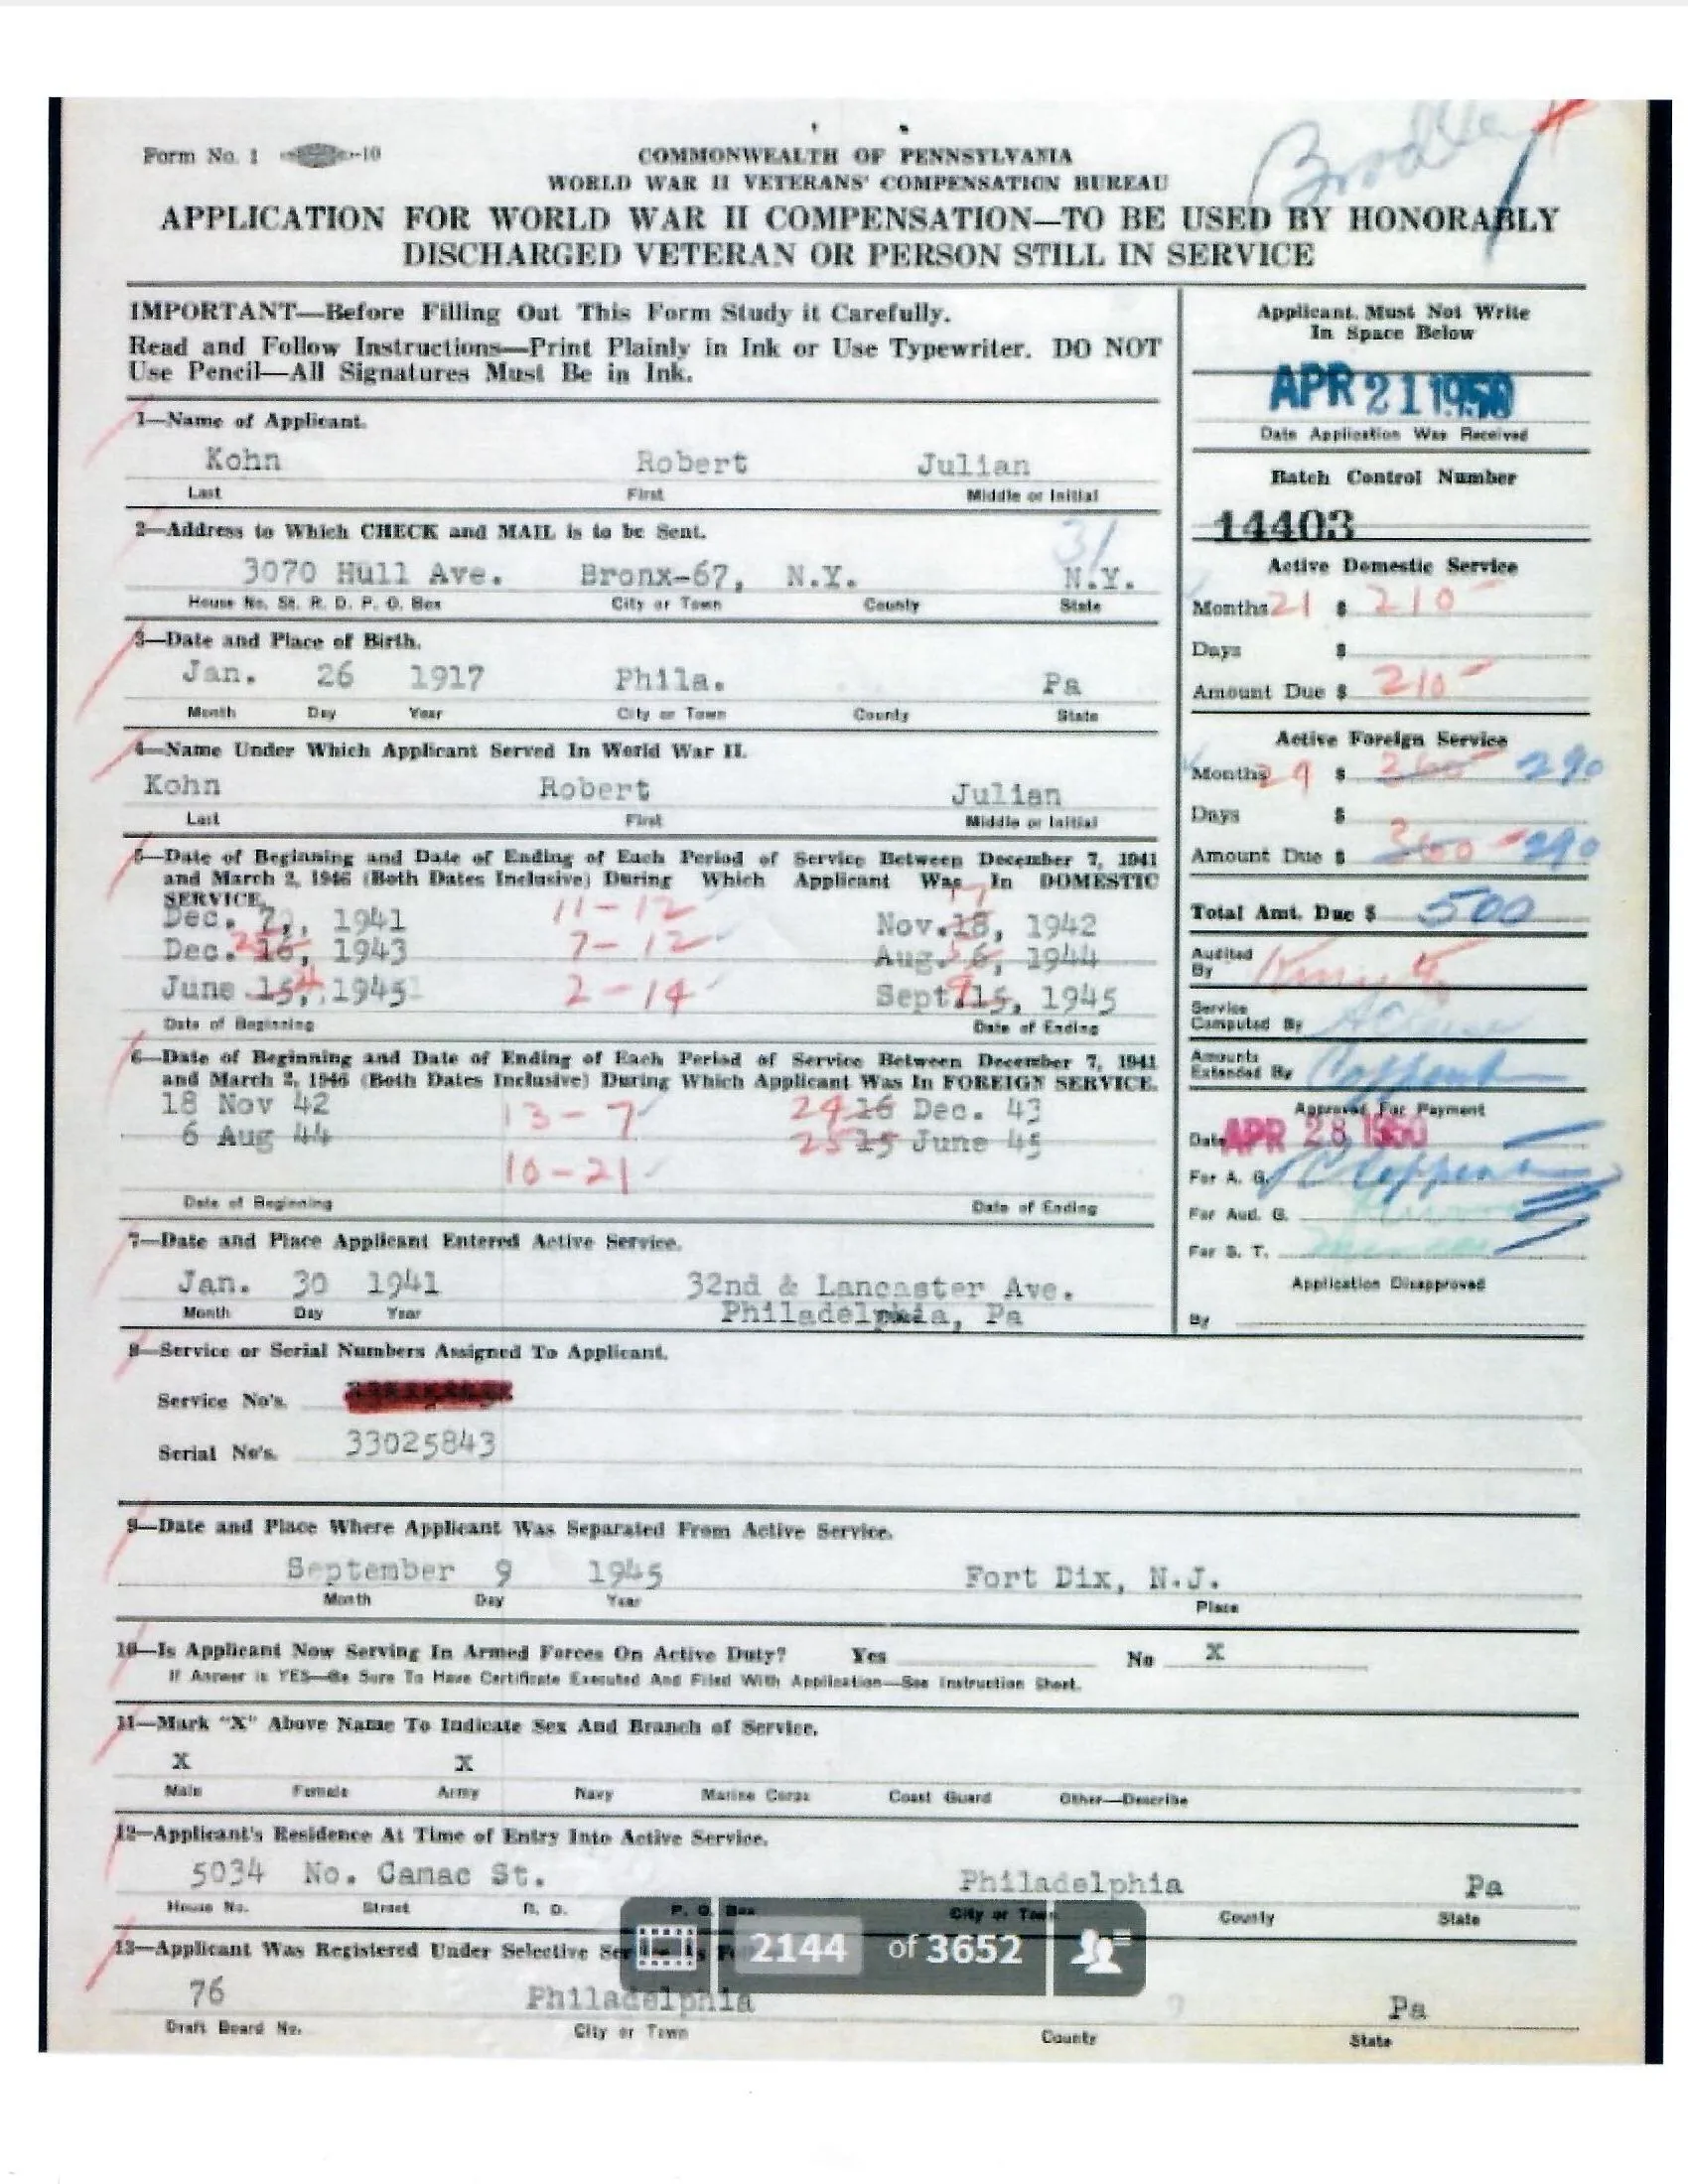 Form No. 1 -10
Bradley
COMMONWEALTH OF PENNSYLVANIA
WORLD WAR II VETERANS' COMPENSATION BUREAU
APPLICATION FOR WORLD WAR II COMPENSATION—TO BE USED BY HONORABLY
DISCHARGED VETERAN OR PERSON STILL IN SERVICE
IMPORTANT—Before Filling Out This Form Study it Carefully.
Read and Follow Instructions—Print Plainly in Ink or Use Typewriter. DO NOT
Use Pencil—All Signatures Must Be in Ink.
1—Name of Applicant.
Kohn Robert Julian
Last First Middle or Initial
2—Address to Which CHECK and MAIL is to be Sent.
31
3070 Hull Ave. Bronx-67, N.Y. N.Y.
House No. St. R. D. P. O. Box City or Town County State
3—Date and Place of Birth.
Jan. 26 1917 Phila. Pa
Month Day Year City or Town County State
4—Name Under Which Applicant Served In World War II.
Kohn Robert Julian
Last First Middle or Initial
5—Date of Beginning and Date of Ending of Each Period of Service Between December 7, 1941
and March 2, 1946 (Both Dates Inclusive) During Which Applicant Was In DOMESTIC
SERVICE.
Dec. 7, 1941 11-12 Nov. 18, 17 1942
Dec. 16, 1943 7-12 Aug. 6, 5 1944
June 15, 1945 2-14 Sept. 15, 9 1945
Date of Beginning Date of Ending
6—Date of Beginning and Date of Ending of Each Period of Service Between December 7, 1941
and March 2, 1946 (Both Dates Inclusive) During Which Applicant Was In FOREIGN SERVICE.
18 Nov 42 13-7 24 16 Dec. 43
6 Aug 44 25 15 June 45
10-21
Date of Beginning Date of Ending
7—Date and Place Applicant Entered Active Service.
Jan. 30 1941 32nd & Lancaster Ave.
Month Day Year Philadelphia, Pa
Applicant Must Not Write
In Space Below
APR 21 1950
Date Application Was Received
Batch Control Number
14403
Active Domestic Service
Months 21 $ 210-
Days $
Amount Due $ 210-
Active Foreign Service
Months 29 $ 360 290
Days $
Amount Due $ 360 290
Total Amt. Due $ 500
Audited
By
Service
Computed By
Amounts
Extended By
Approved For Payment
Date APR 28 1950
For A. G.
For Aud. G.
For S. T.
Application Disapproved
By
8—Service or Serial Numbers Assigned To Applicant.
Service No's.
Serial No's. 33025843
9—Date and Place Where Applicant Was Separated From Active Service.
September 9 1945 Fort Dix, N.J.
Month Day Year Place
10—Is Applicant Now Serving In Armed Forces On Active Duty? Yes No X
If Answer is YES—Be Sure To Have Certificate Executed And Filed With Application—See Instruction Sheet.
11—Mark "X" Above Name To Indicate Sex And Branch of Service.
X X
Male Female Army Navy Marine Corps Coast Guard Other—Describe
12—Applicant's Residence At Time of Entry Into Active Service.
5034 No. Camac St. Philadelphia Pa
House No. Street R. D. P. O. Box City or Town County State
13—Applicant Was Registered Under Selective
2144 of 3652
76 Philadelphia Pa
Draft Board No. City or Town County State